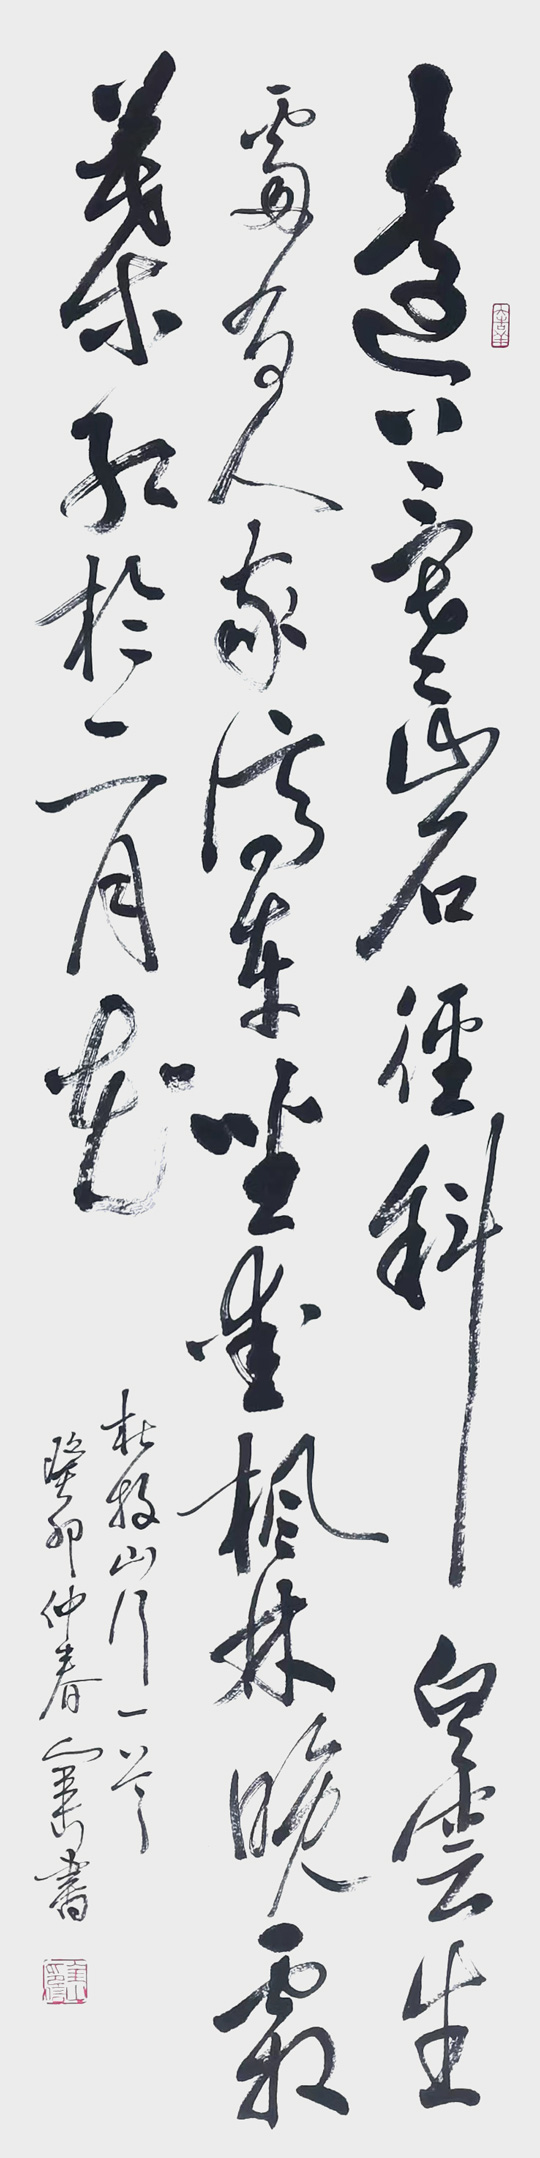 遠上寒山石徑斜白雲生
處有人家停車坐愛楓林晚霜
葉紅於二月花
杜牧山行一首
癸卯仲春書
大吉羊